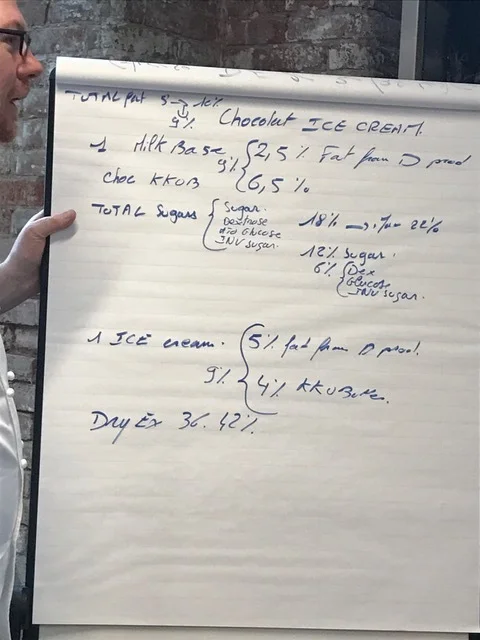 TOTAL fat 5 → 12%
9%
Chocolat ICE CREAM.
1 Milk Base 9% { 2,5 % Fat from D prod
choc KKOB 6,5 %
TOTAL Sugars { Sugar.
Dextrose
Glucose
INV sugar.
18% → 22%
12% Sugar.
6% { Dex
Glucose
INV sugar.
1 ICE cream. { 5% fat from D prod.
9%
4% KKO
Dry Ex 36. 42%